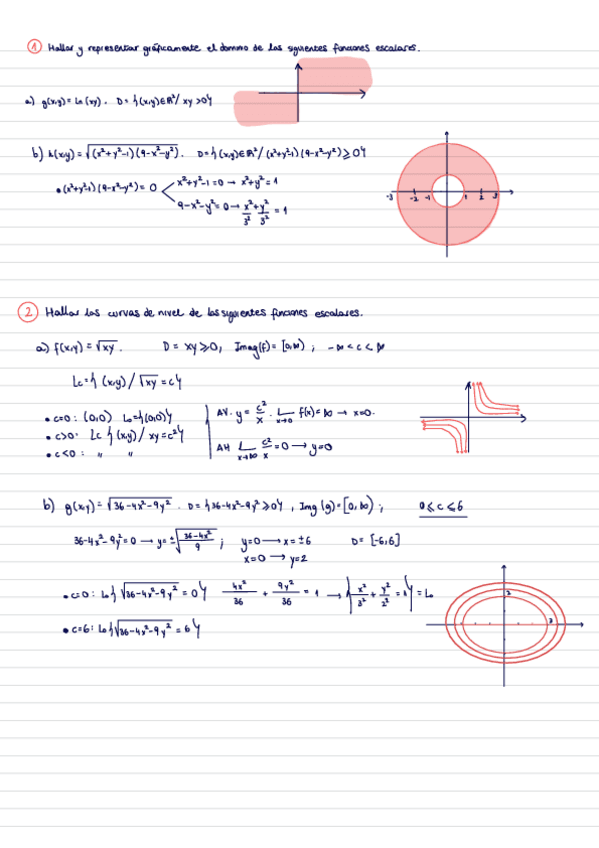 1 Hallar y representar gráficamente el dominio de las siguientes funciones escalares.
a) g(x,y) = Ln(xy). D = {(x,y)∈ℝ²/ xy >0}
b) h(x,y) = √(x²+y²-1)(9-x²-y²). D = {(x,y)∈ℝ²/ (x²+y²-1)(9-x²-y²) ≥ 0}
• (x²+y²-1)(9-x²-y²) = 0
x²+y²-1=0 → x²+y²=1
9-x²-y²=0 → x²/3² + y²/3² = 1
-3 -2 -1 1 2 3
2 Hallar las curvas de nivel de las siguientes funciones escalares.
a) f(x,y) = √xy. D = xy ≥ 0, Imag(f) = [0,∞) ; -∞ < c < ∞
Lc = {(x,y)/ √xy = c}
• c=0 : (0,0) L₀={(0,0)}
• c>0 : Lc { (x,y)/ xy = c²}
• c<0 : " "
AV. y = c²/x . L x→0 f(x) = ∞ → x=0.
AH L x→∞ c²/x = 0 → y=0
b) g(x,y) = √36-4x²-9y² . D = {36-4x²-9y² ≥ 0} , Img (g) = [0,∞) ; 0 ≤ c ≤ 6
36-4x²-9y²=0 → y = ±√36-4x²/9 ; y=0 → x = ±6 D = [-6,6]
x=0 → y=2
• c=0 : L₀{√36-4x²-9y² = 0} 4x²/36 + 9y²/36 = 1 → {x²/3² + y²/2² = 1} = L₀
• c=6 : L₀{√36-4x²-9y² = 6}
2
3